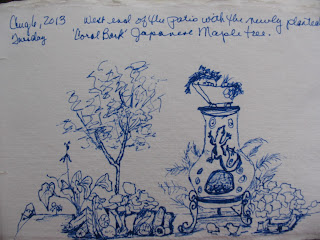 Aug 6, 2013 West end of the patio with the newly planted
Tuesday 'Coral Bark' Japanese Maple tree.